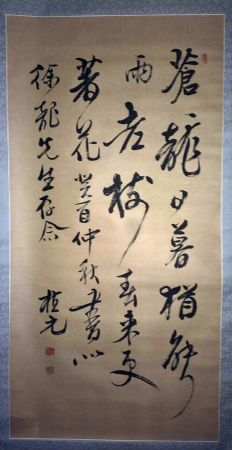 蒼龍日暮猶能
雨老樹春來更
著花癸酉仲秋書以
徐龍先生存念